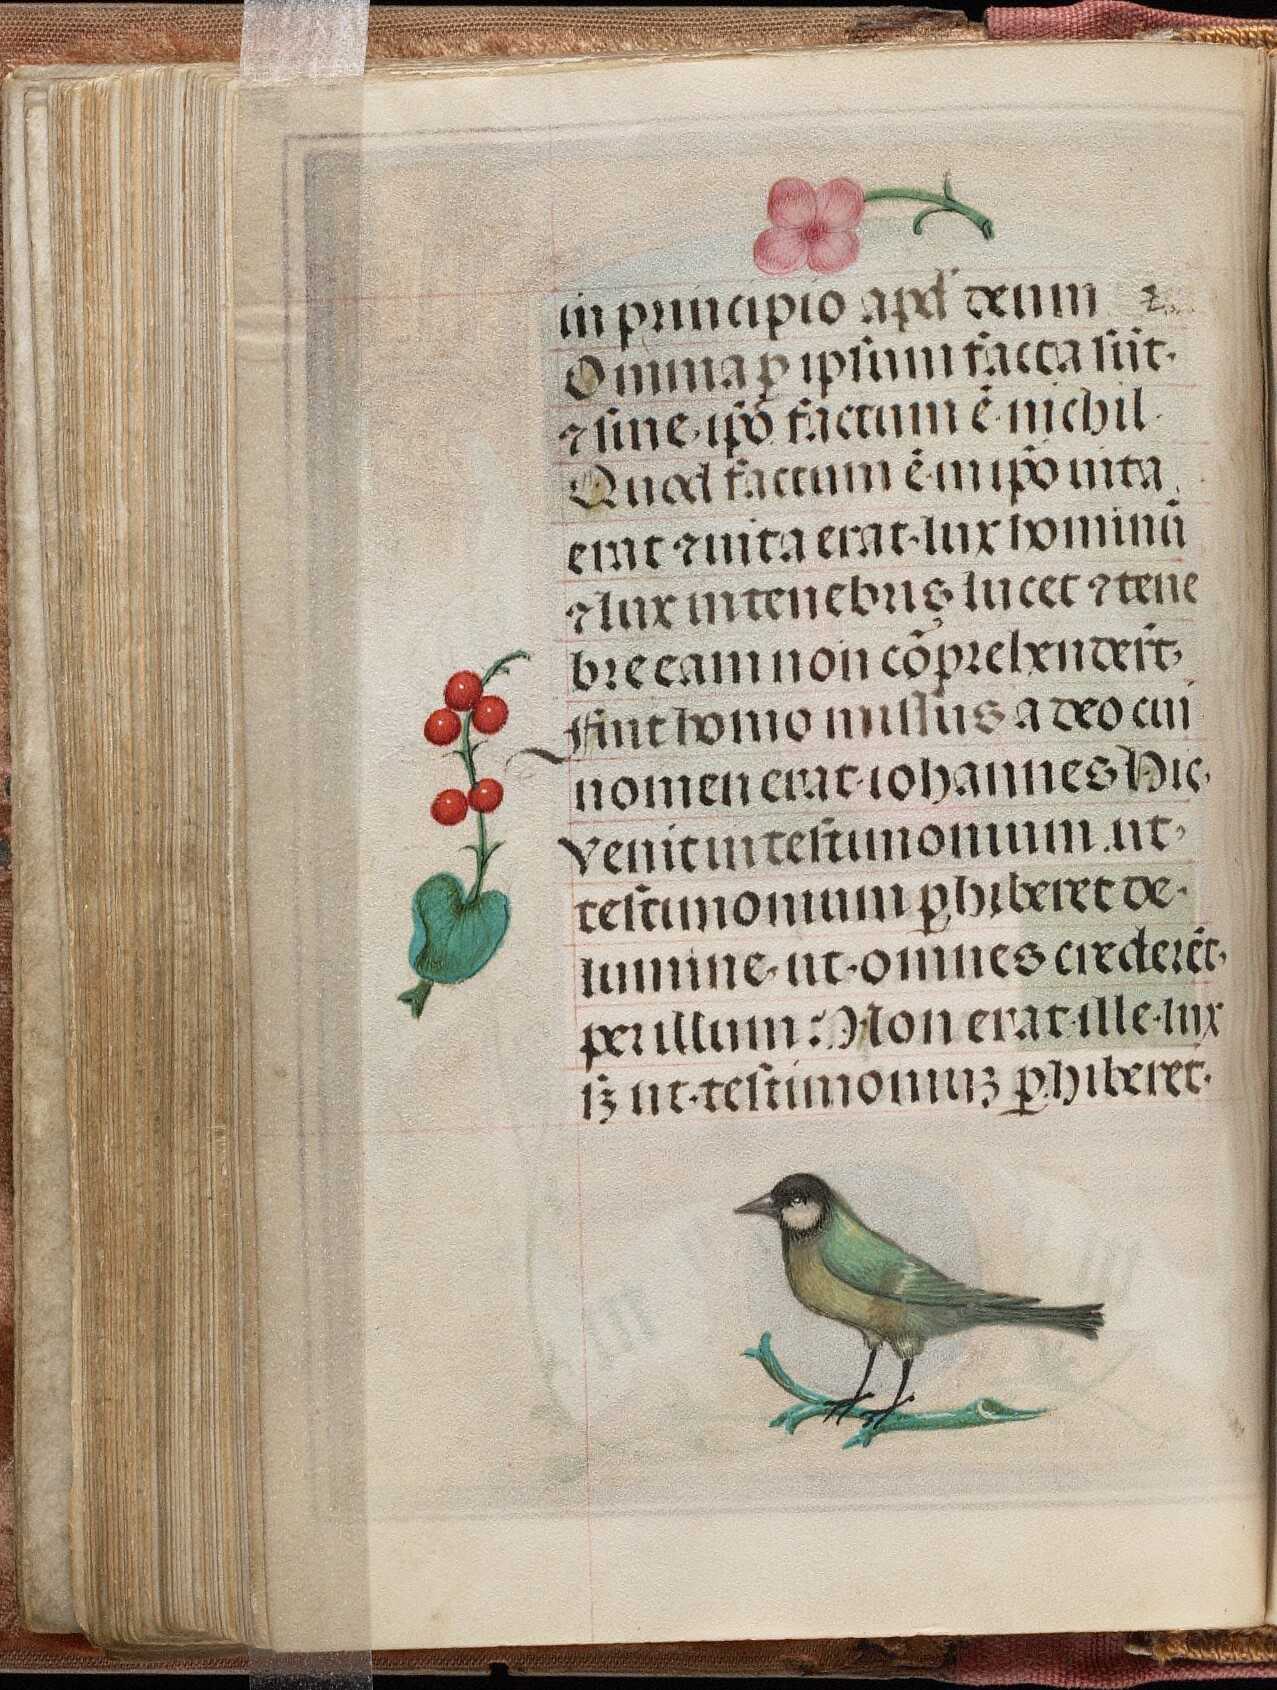 in principio apď deum
Omnia ꝑ ipsum facta sūt·
⁊ sine· ip̄o factum ē· nichil
Quod factum ē· in ip̄o uita
erat ⁊ uita erat· lux hominū
⁊ lux in tenebris lucet ⁊ tene
bre eam non cōprehendert̄·
Fuit homo missus a deo cui
nomen erat· iohannes Hic·
venit in testimonium .ut·
testimonium ꝑhiberet de·
lumine· ut· omnes crederēt·
per illum : Non erat· ille· lux
sꝫ ut· testimoniuꝫ ꝑhiberet·